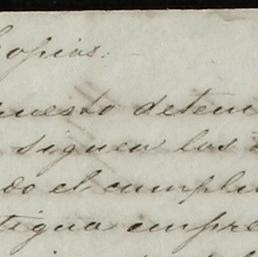 Copias.
puesto deten
siguen las
do el cumpli
tigua empre